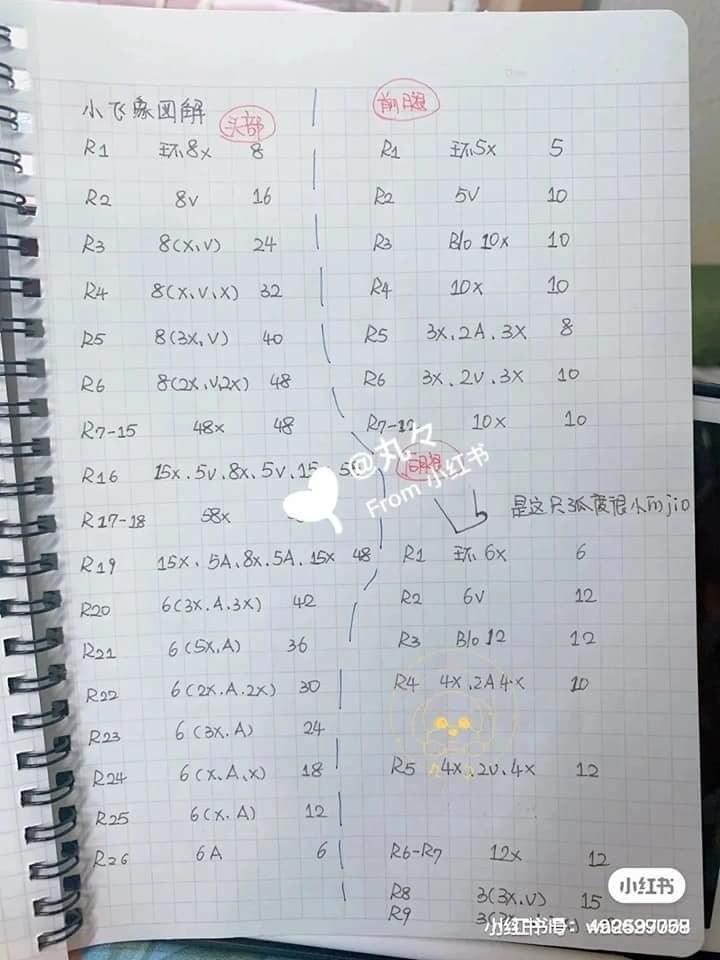 小飞象图解 头部
R1 环8x 8
R2 8v 16
R3 8(x,v) 24
R4 8(x.v.x) 32
R5 8(3x,v) 40
R6 8(2x,v,2x) 48
R7-15 48x 48
R16 15x.5v.8x.5v.15
R17-18 58x
R19 15x.5A.8x.5A.15x 48
R20 6(3x.A.3x) 42
R21 6(5x,A) 36
R22 6(2x.A.2x) 30
R23 6(3x.A) 24
R24 6(x,A,x) 18
R25 6(x.A) 12
R26 6A 6
前腿
R1 环5x 5
R2 5v 10
R3 Blo 10x 10
R4 10x 10
R5 3x.2A.3x 8
R6 3x.2v.3x 10
R7-12 10x 10
后腿
是这只弧度很小的jio
R1 环6x 6
R2 6v 12
R3 Blo 12 12
R4 4x.2A 4x 10
R5 4x.2v.4x 12
R6-R7 12x 12
R8 3(3x.v) 15
R9
@丸々
From 小红书
小红书
小红书号: